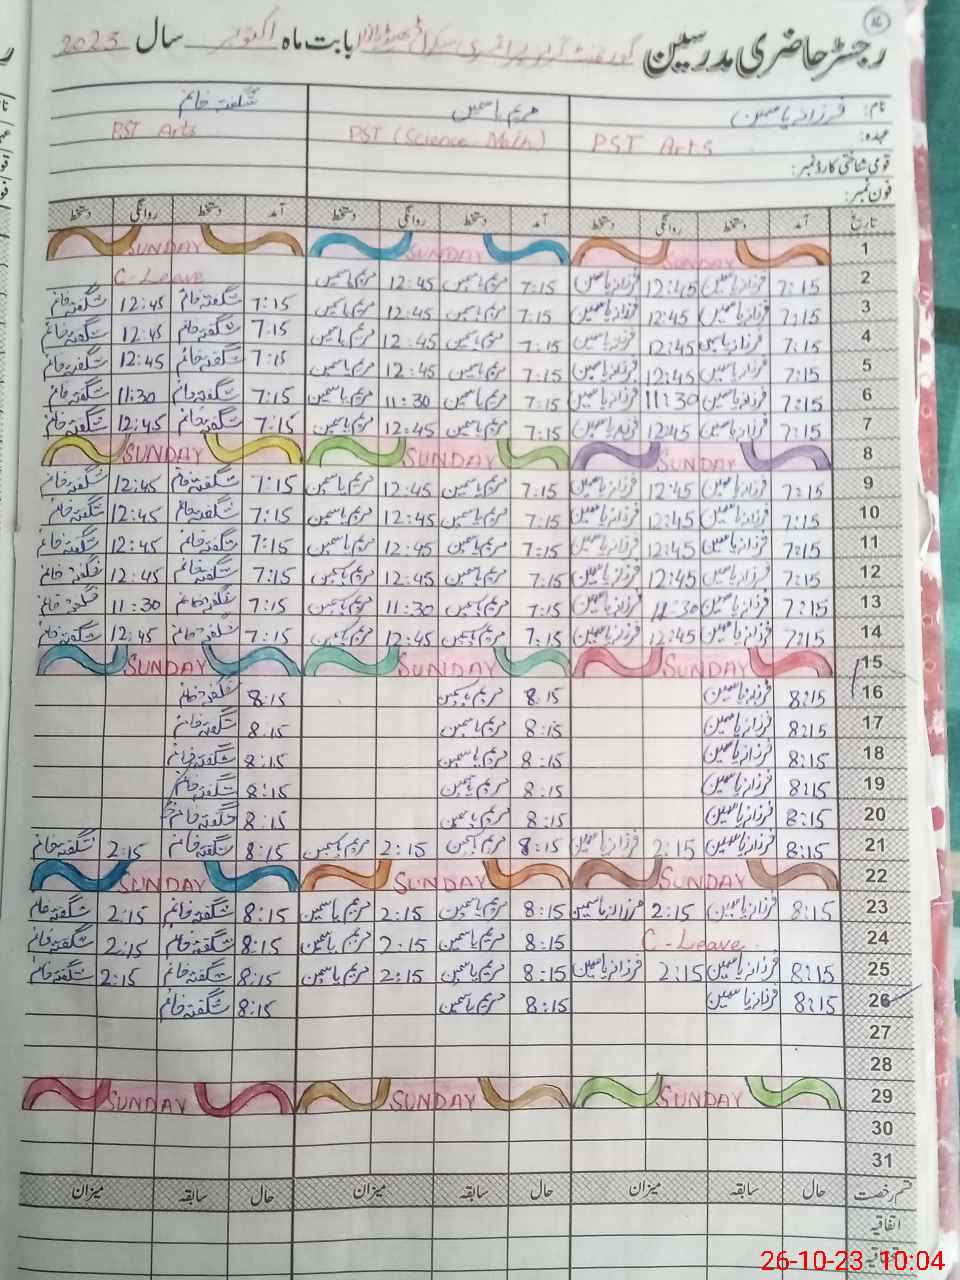 رجسٹر حاضری مدرسین گورنمنٹ گرلز پرائمری سکول بابت ماہ اکتوبر سال 2023
نام: فرزانہ یاسمین مریم یاسمین شگفتہ خانم
عہدہ: PST Arts PST (Science Math) PST Arts
قومی شناختی کارڈ نمبر:
فون نمبر:
تاریخ آمد دستخط روانگی دستخط آمد دستخط روانگی دستخط آمد دستخط روانگی دستخط
1 SUNDAY SUNDAY SUNDAY
2 7:15 فرزانہ یاسمین 12:45 فرزانہ یاسمین 7:15 مریم یاسمین 12:45 مریم یاسمین C-Leave
3 7:15 فرزانہ یاسمین 12:45 فرزانہ یاسمین 7:15 مریم یاسمین 12:45 مریم یاسمین 7:15 شگفتہ خانم 12:45 شگفتہ خانم
4 7:15 فرزانہ یاسمین 12:45 فرزانہ یاسمین 7:15 مریم یاسمین 12:45 مریم یاسمین 7:15 شگفتہ خانم 12:45 شگفتہ خانم
5 7:15 فرزانہ یاسمین 12:45 فرزانہ یاسمین 7:15 مریم یاسمین 12:45 مریم یاسمین 7:15 شگفتہ خانم 12:45 شگفتہ خانم
6 7:15 فرزانہ یاسمین 11:30 فرزانہ یاسمین 7:15 مریم یاسمین 11:30 مریم یاسمین 7:15 شگفتہ خانم 11:30 شگفتہ خانم
7 7:15 فرزانہ یاسمین 12:45 فرزانہ یاسمین 7:15 مریم یاسمین 12:45 مریم یاسمین 7:15 شگفتہ خانم 12:45 شگفتہ خانم
8 SUNDAY SUNDAY SUNDAY
9 7:15 فرزانہ یاسمین 12:45 فرزانہ یاسمین 7:15 مریم یاسمین 12:45 مریم یاسمین 7:15 شگفتہ خانم 12:45 شگفتہ خانم
10 7:15 فرزانہ یاسمین 12:45 فرزانہ یاسمین 7:15 مریم یاسمین 12:45 مریم یاسمین 7:15 شگفتہ خانم 12:45 شگفتہ خانم
11 7:15 فرزانہ یاسمین 12:45 فرزانہ یاسمین 7:15 مریم یاسمین 12:45 مریم یاسمین 7:15 شگفتہ خانم 12:45 شگفتہ خانم
12 7:15 فرزانہ یاسمین 12:45 فرزانہ یاسمین 7:15 مریم یاسمین 12:45 مریم یاسمین 7:15 شگفتہ خانم 12:45 شگفتہ خانم
13 7:15 فرزانہ یاسمین 11:30 فرزانہ یاسمین 7:15 مریم یاسمین 11:30 مریم یاسمین 7:15 شگفتہ خانم 11:30 شگفتہ خانم
14 7:15 فرزانہ یاسمین 12:45 فرزانہ یاسمین 7:15 مریم یاسمین 12:45 مریم یاسمین 7:15 شگفتہ خانم 12:45 شگفتہ خانم
15 SUNDAY SUNDAY SUNDAY
16 8:15 فرزانہ یاسمین 8:15 مریم یاسمین 8:15 شگفتہ خانم
17 8:15 فرزانہ یاسمین 8:15 مریم یاسمین 8:15 شگفتہ خانم
18 8:15 فرزانہ یاسمین 8:15 مریم یاسمین 8:15 شگفتہ خانم
19 8:15 فرزانہ یاسمین 8:15 مریم یاسمین 8:15 شگفتہ خانم
20 8:15 فرزانہ یاسمین 8:15 مریم یاسمین 8:15 شگفتہ خانم
21 8:15 فرزانہ یاسمین 2:15 فرزانہ یاسمین 8:15 مریم یاسمین 2:15 مریم یاسمین 8:15 شگفتہ خانم 2:15 شگفتہ خانم
22 SUNDAY SUNDAY SUNDAY
23 8:15 فرزانہ یاسمین 2:15 فرزانہ یاسمین 8:15 مریم یاسمین 2:15 مریم یاسمین 8:15 شگفتہ خانم 2:15 شگفتہ خانم
24 C-Leave 8:15 مریم یاسمین 2:15 مریم یاسمین 8:15 شگفتہ خانم 2:15 شگفتہ خانم
25 8:15 فرزانہ یاسمین 2:15 فرزانہ یاسمین 8:15 مریم یاسمین 2:15 مریم یاسمین 8:15 شگفتہ خانم 2:15 شگفتہ خانم
26 8:15 فرزانہ یاسمین 8:15 مریم یاسمین 8:15 شگفتہ خانم
27
28
29 SUNDAY SUNDAY SUNDAY
30
31
قسم رخصت حال سابقہ میزان حال سابقہ میزان حال سابقہ میزان
اتفاقیہ
26-10-23 10:04